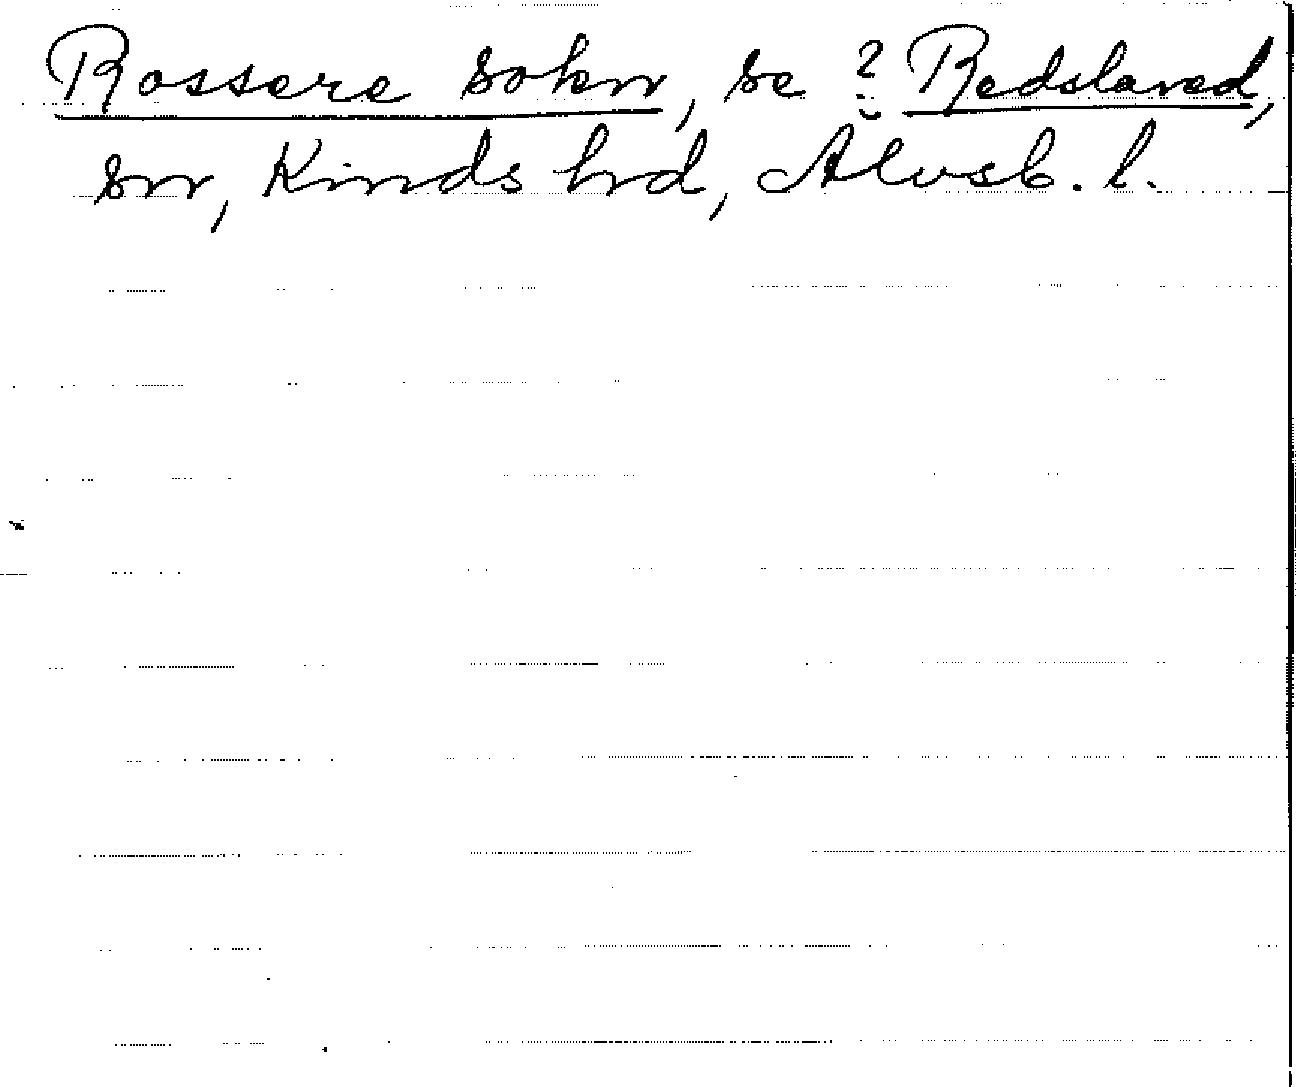 Rossere sokn, se ? Redslared,
sn, Kinds hd, Älvsb. l.